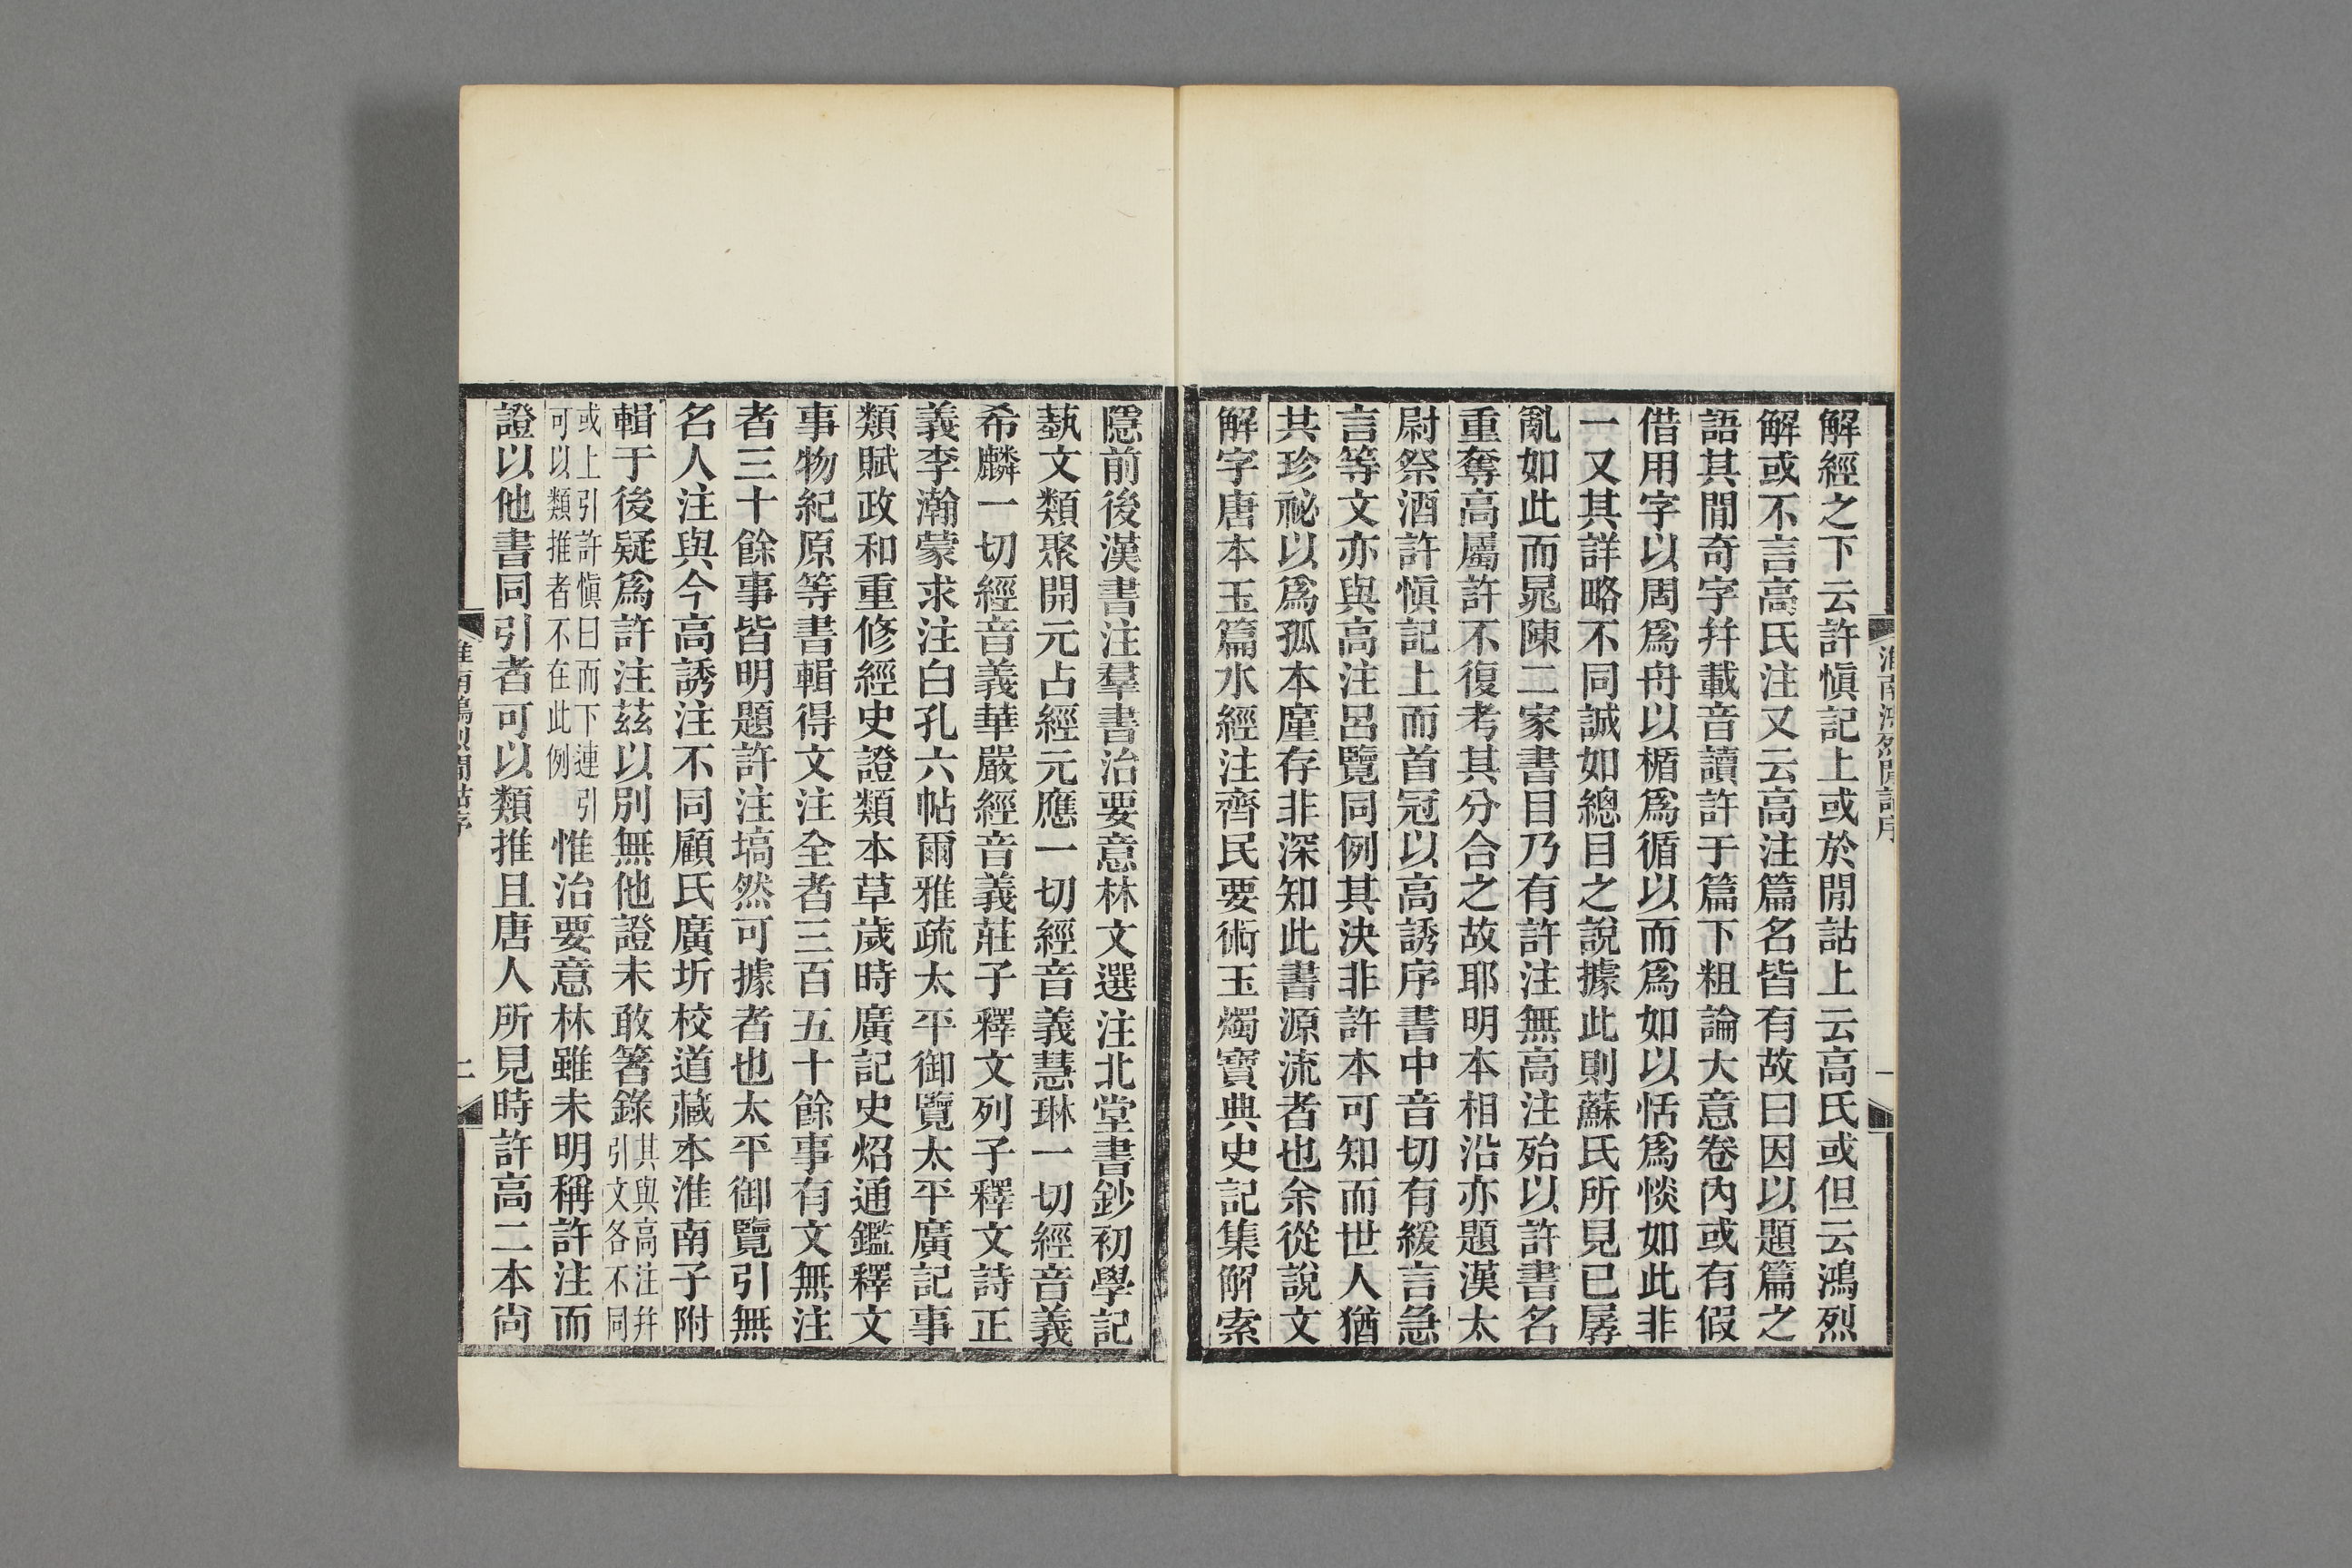 淮南鴻烈閒詁序
一
解經之下云許愼記上或於閒詁上云高氏或但云鴻烈
解或不言高氏注又云高注篇名皆有故曰因以題篇之
語其閒奇字幷載音讀許于篇下粗論大意卷內或有假
借用字以周爲舟以楯爲循以而爲如以恬爲惔如此非
一又其詳略不同誠如總目之說據此則蘇氏所見已孱
亂如此而晁陳二家書目乃有許注無高注殆以許書名
重奪高屬許不復考其分合之故耶明本相沿亦題漢太
尉祭酒許愼記上而首冠以高誘序書中音切有緩言急
言等文亦與高注呂覽同例其決非許本可知而世人猶
共珍祕以爲孤本廑存非深知此書源流者也余從說文
解字唐本玉篇水經注齊民要術玉燭寶典史記集解索
隱前後漢書注羣書治要意林文選注北堂書鈔初學記
蓺文類聚開元占經元應一切經音義慧琳一切經音義
希麟一切經音義華嚴經音義莊子釋文列子釋文詩正
義李瀚蒙求注白孔六帖爾雅疏太平御覽太平廣記事
類賦政和重修經史證類本草歲時廣記史炤通鑑釋文
事物紀原等書輯得文注全者三百五十餘事有文無注
者三十餘事皆明題許注塙然可據者也太平御覽引無
名人注與今高誘注不同顧氏廣圻校道藏本淮南子附
輯于後疑爲許注茲以別無他證未敢箸錄其與高注幷引文各不同
或上引許愼曰而下連引可以類推者不在此例惟治要意林雖未明稱許注而
證以他書同引者可以類推且唐人所見時許高二本尙
淮南鴻烈閒詁序
二